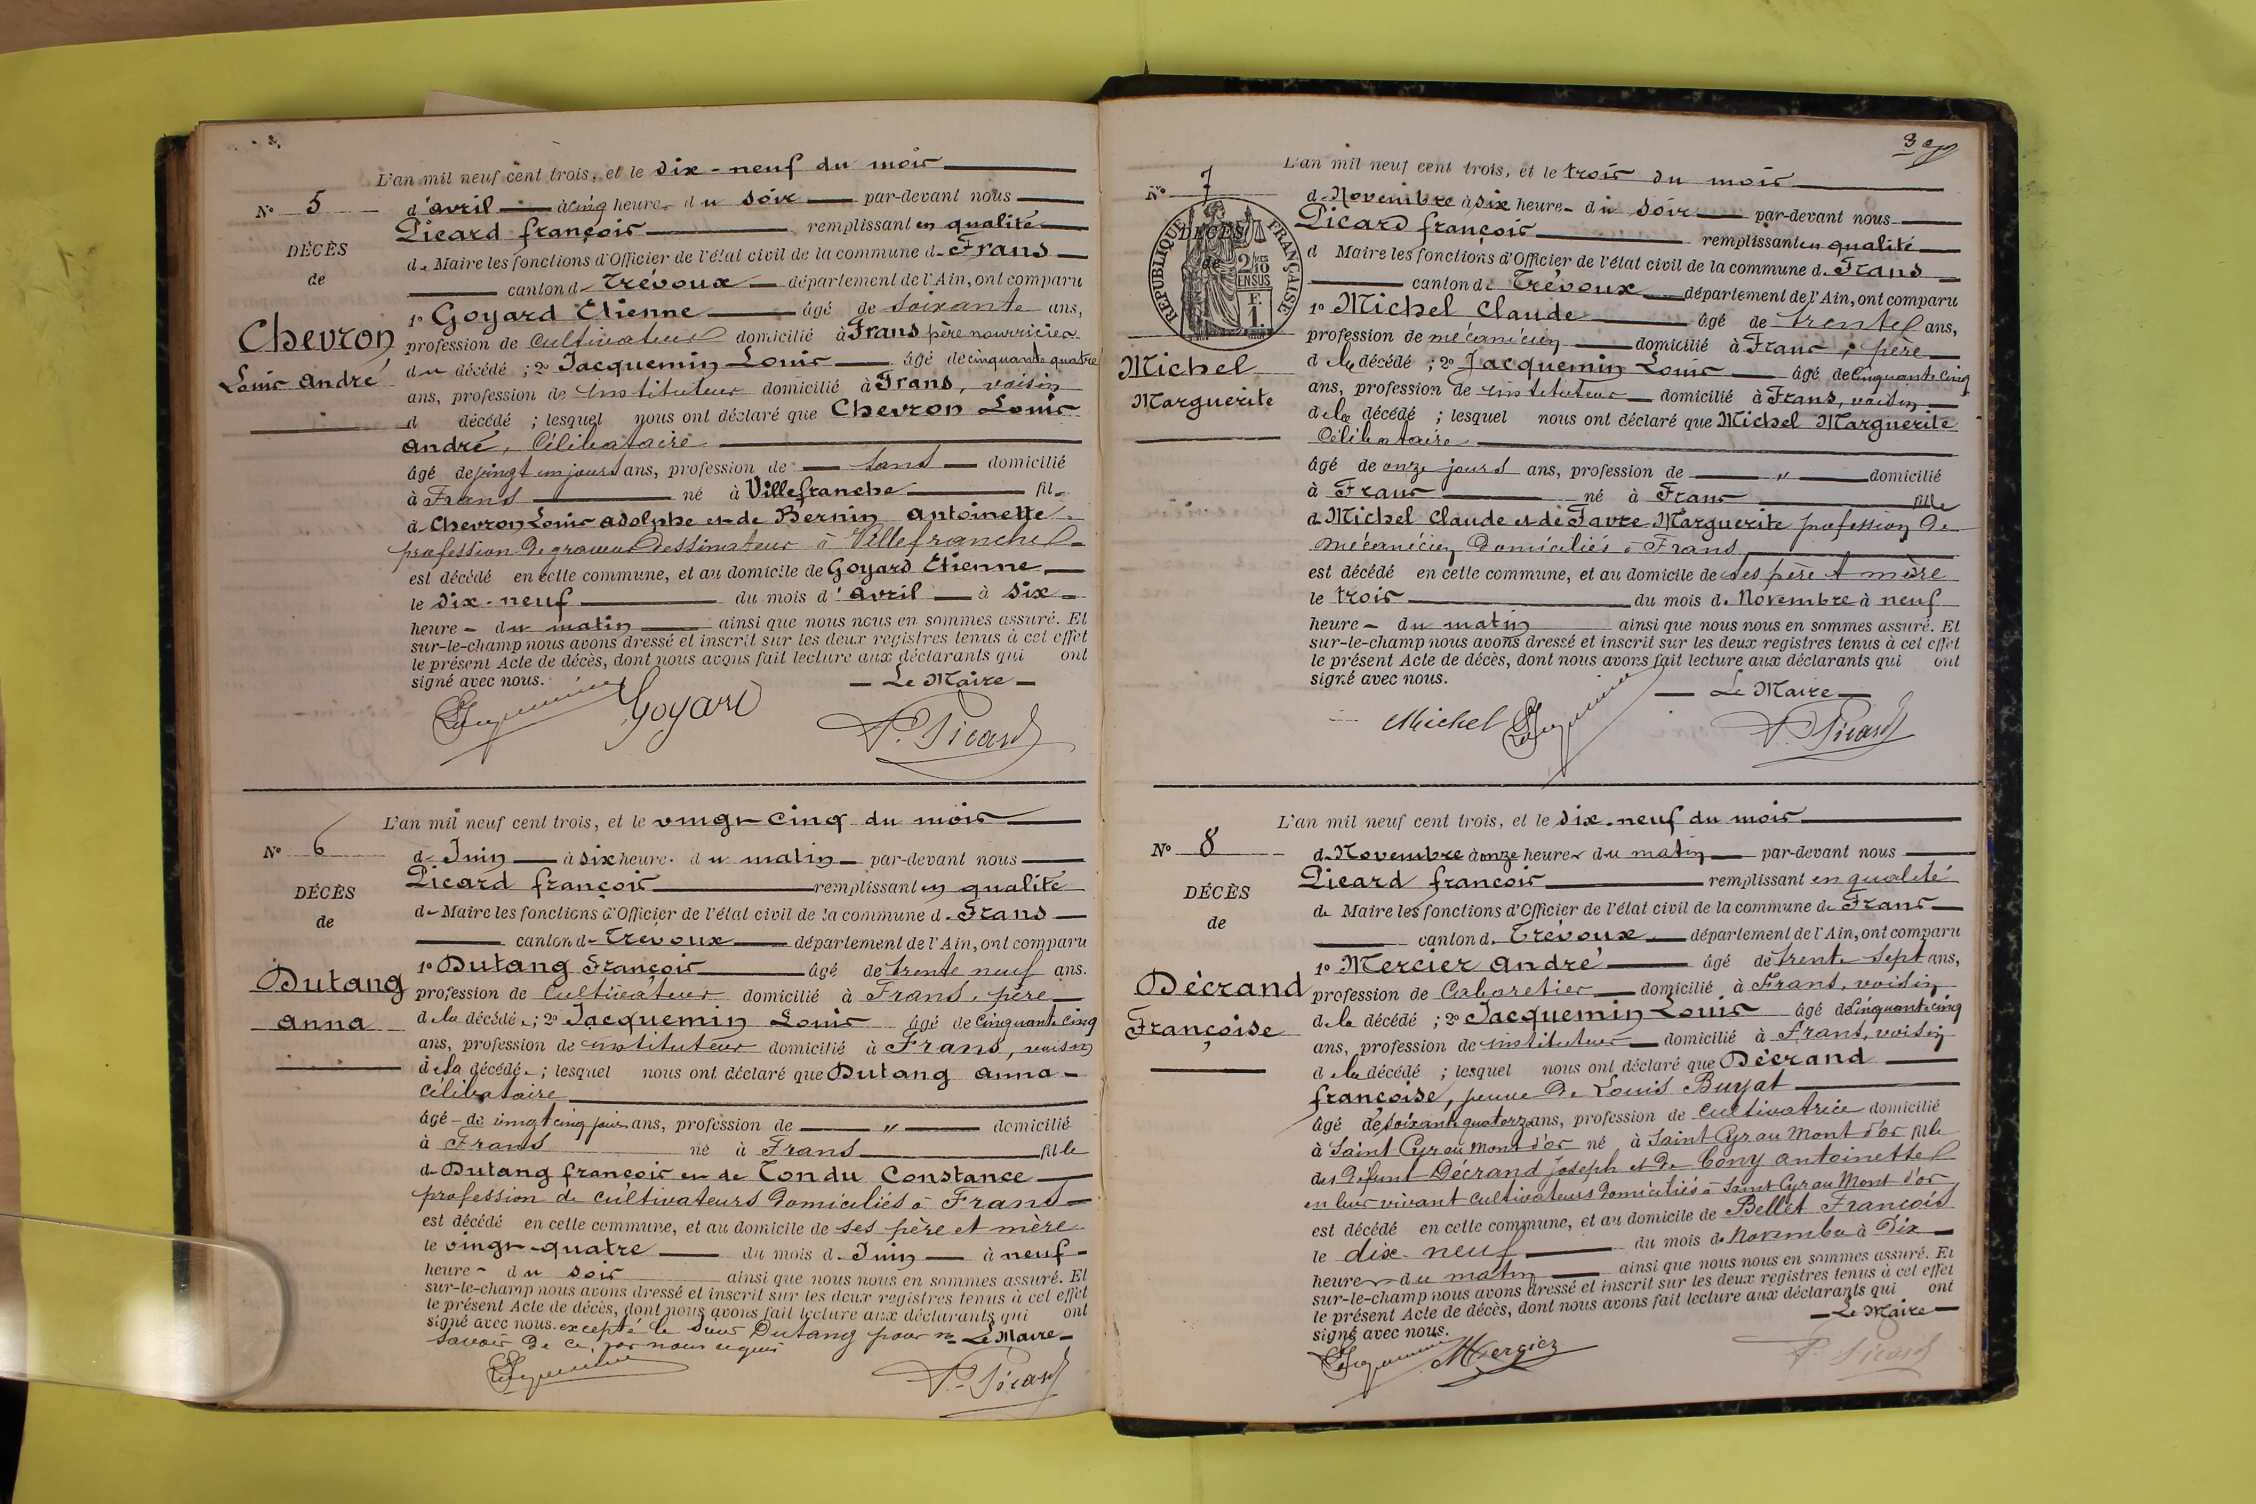 L'an mil neuf cent trois, et le dix-neuf du mois
N° 5
d'avril à cinq heure du soir par-devant nous
Picard françois remplissant en qualité
DÉCÈS
de Maire les fonctions d'Officier de l'état civil de la commune de Frans
de
canton de Trévoux département de l'Ain, ont comparu
1° Goyard Etienne âgé de soixante ans,
Chevron
profession de cultivateur domicilié à Frans père nourricier
Louis André
du décédé ; 2° Jacquemin Louis âgé de cinquante quatre
ans, profession de instituteur domicilié à Frans, voisin
d décédé ; lesquel nous ont déclaré que Chevron Louis
André, Célibataire
âgé de vingt un jours ans, profession de sans domicilié
à Frans né à Villefranche fil
de Chevron Louis Adolphe et de Bernin Antoinette
profession de graveur dessinateur à Villefranche
est décédé en cette commune, et au domicile de Goyard Etienne
le dix-neuf du mois d'avril à six
heure du matin ainsi que nous nous en sommes assuré. Et
sur-le-champ nous avons dressé et inscrit sur les deux registres tenus à cet effet
le présent Acte de décès, dont nous avons fait lecture aux déclarants qui ont
signé avec nous.
Le Maire
Jacquemin Goyard P. Picard
L'an mil neuf cent trois, et le vingt-cinq du mois
N° 6
de Juin à six heure du matin par-devant nous
Picard françois remplissant en qualité
DÉCÈS
de Maire les fonctions d'Officier de l'état civil de la commune de Frans
de
canton de Trévoux département de l'Ain, ont comparu
1° Dutang François âgé de trente neuf ans.
Dutang
profession de Cultivateur domicilié à Frans, père
anna
de la décédée ; 2° Jacquemin Louis âgé de cinquante cinq
ans, profession de instituteur domicilié à Frans, voisin
de la décédée ; lesquel nous ont déclaré que Dutang anna
célibataire
âgé de vingt cinq jours ans, profession de " domicilié
à Frans né à Frans fille
de Dutang françois et de Tondu Constance
profession de cultivateurs domiciliés à Frans
est décédé en cette commune, et au domicile de ses père et mère
le vingt-quatre du mois de Juin à neuf
heure du soir ainsi que nous nous en sommes assuré. Et
sur-le-champ nous avons dressé et inscrit sur les deux registres tenus à cet effet
le présent Acte de décès, dont nous avons fait lecture aux déclarants qui ont
signé avec nous. excepté le sieur Dutang pour ne
savoir de ce par nous requis
Le Maire
Jacquemin P. Picard
L'an mil neuf cent trois, et le trois du mois
N° 7
de Novembre à six heure du soir par-devant nous
Picard françois remplissant en qualité
DÉCÈS
d Maire les fonctions d'Officier de l'état civil de la commune de Frans
de
RÉPUBLIQUE FRANÇAISE
2/10 EN SUS
canton de Trévoux département de l'Ain, ont comparu
1° Michel Claude âgé de trente ans,
profession de mécanicien domicilié à Frans, père
Michel
de la décédé ; 2° Jacquemin Louis âgé de cinquante cinq
Marguerite
ans, profession de instituteur domicilié à Frans, voisin
de la décédé ; lesquel nous ont déclaré que Michel Marguerite
Célibataire
âgé de onze jours ans, profession de " domicilié
à Frans né à Frans fille
de Michel Claude et de Favre Marguerite profession de
mécanicien domiciliés à Frans
est décédé en cette commune, et au domicile de ses père et mère
le trois du mois de Novembre à neuf
heure du matin ainsi que nous nous en sommes assuré. Et
sur-le-champ nous avons dressé et inscrit sur les deux registres tenus à cet effet
le présent Acte de décès, dont nous avons fait lecture aux déclarants qui ont
signé avec nous.
Le Maire
Michel Jacquemin P. Picard
L'an mil neuf cent trois, et le dix-neuf du mois
N° 8
de Novembre à onze heures du matin par-devant nous
Picard françois remplissant en qualité
DÉCÈS
de Maire les fonctions d'Officier de l'état civil de la commune de Frans
de
canton de Trévoux département de l'Ain, ont comparu
1° Mercier André âgé de trente sept ans,
Décrand
profession de Cabaretier domicilié à Frans, voisin
Françoise
de la décédé ; 2° Jacquemin Louis âgé de cinquante cinq
ans, profession de instituteur domicilié à Frans, voisin
de la décédé ; lesquel nous ont déclaré que Décrand
françoise, veuve de Louis Buyat
âgé de soixante quatorze ans, profession de cultivatrice domicilié
à Saint Cyr au Mont d'or né à Saint Cyr au Mont d'or fille
des défunt Décrand Joseph et de Cony Antoinette
en leur vivant cultivateurs domiciliés à Saint Cyr au Mont d'or
est décédé en cette commune, et au domicile de Bellet François
le dix-neuf du mois de Novembre à Dix
heures du matin ainsi que nous nous en sommes assuré. Et
sur-le-champ nous avons dressé et inscrit sur les deux registres tenus à cet effet
le présent Acte de décès, dont nous avons fait lecture aux déclarants qui ont
signé avec nous.
Le Maire
Jacquemin Mercier P. Picard